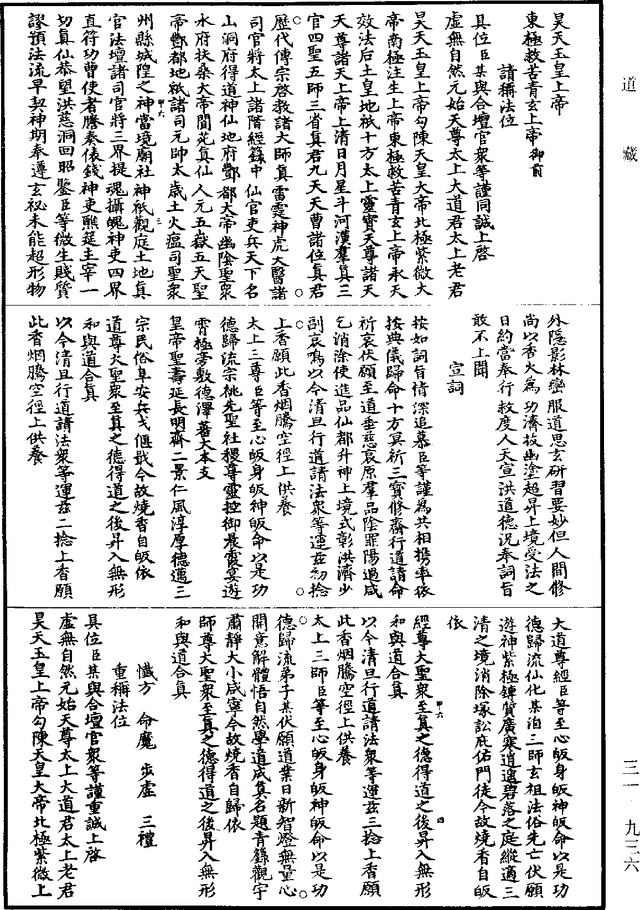 道藏
昊天玉皇上帝
東極救苦青玄上帝御前
請稱法位
具位臣某與合壇官衆等謹同誠上啓
虛無自然元始天尊太上大道君太上老君
昊天玉皇上帝勾陳天皇大帝北極紫微大
帝南極注生上帝東極救苦青玄上帝承天
效法后土皇地祇十方太上靈寶天尊諸天
天尊諸天上帝上清日月星斗河漢羣真三
官四聖五師三省真君九天天曹諸位真君
歷代傳宗啓教諸大師真雷霆神虎大醫諸
司官將太上諸階經籙中仙官吏兵天下名
山洞府得道神仙地府酆都大帝幽陰聖衆
水府扶桑大帝闔宛真仙人元五嶽五天聖
帝酆都地祇諸司元帥太歲土火瘟司聖衆
州縣城隍之神當境廟社神祇觀庭土地真
官法壇諸司官將三界提魂攝魄神吏四界
直符功曹使者騰奏俵錢神吏醮筵主宰一
切真仙恭望洪慈洞回昭鑒臣等微生賤質
謬預法流早契神期奉遵玄祕未能超形物
外隱影林巒服道思玄研習要妙但人間修
尚以香火為功濟拔幽塗超昇上境受法之
日約當奉行救度人天宣洪道德況奉詞旨
敢不上聞
宣詞
按如詞旨情深追慕臣等謹為共相攜率依
按典儀歸命十方冥祈三寶修齋行道請命
祈哀伏願至道垂慈哀原羣品陰罪陽過咸
乞消除使進品仙都升神上境式彰洪濟少
副哀為以今清旦行道請法衆等運茲初捻
上香願此香烟騰空徑上供養
太上三尊臣等至心皈身皈神皈命以是功
德歸流宗祧先聖社稷尊靈控御晨霞宴遊
霄極旁敷德澤蕃大本支
皇帝聖壽延長明齊二景仁風淳厚德邁三
宗民俗阜安兵戈偃戢今故燒香自皈依
道尊大聖衆至真之德得道之後昇入無形
和與道合真
以今清旦行道請法衆等運茲二捻上香願
此香烟騰空徑上供養
大道尊經臣等至心皈身皈神皈命以是功
德歸流仙化某洎三師玄祖法俗先亡伏願
遊神紫極鍊質廣寒逍遥碧落之庭縱適三
清之境消除塚訟庇佑門徒今故燒香自皈
依
經尊大聖衆至真之德得道之後昇入無形
和與道合真
以今清旦行道請法衆等運茲三捻上香願
此香烟騰空徑上供養
太上三師臣等至心皈身皈神皈命以是功
德歸流弟子某伏願道業日新智燈無量心
開意解體悟自然學道成真名題青籙觀宇
肅靜大小咸寧今故燒香自歸依
師尊大聖衆至真之德得道之後昇入無形
和與道合真
懺方　命魔　步虛　三禮
重稱法位
具位臣某與合壇官衆等謹重誠上啓
虛無自然元始天尊太上大道君太上老君
昊天玉皇上帝勾陳天皇大帝北極紫微上
三一·九三六